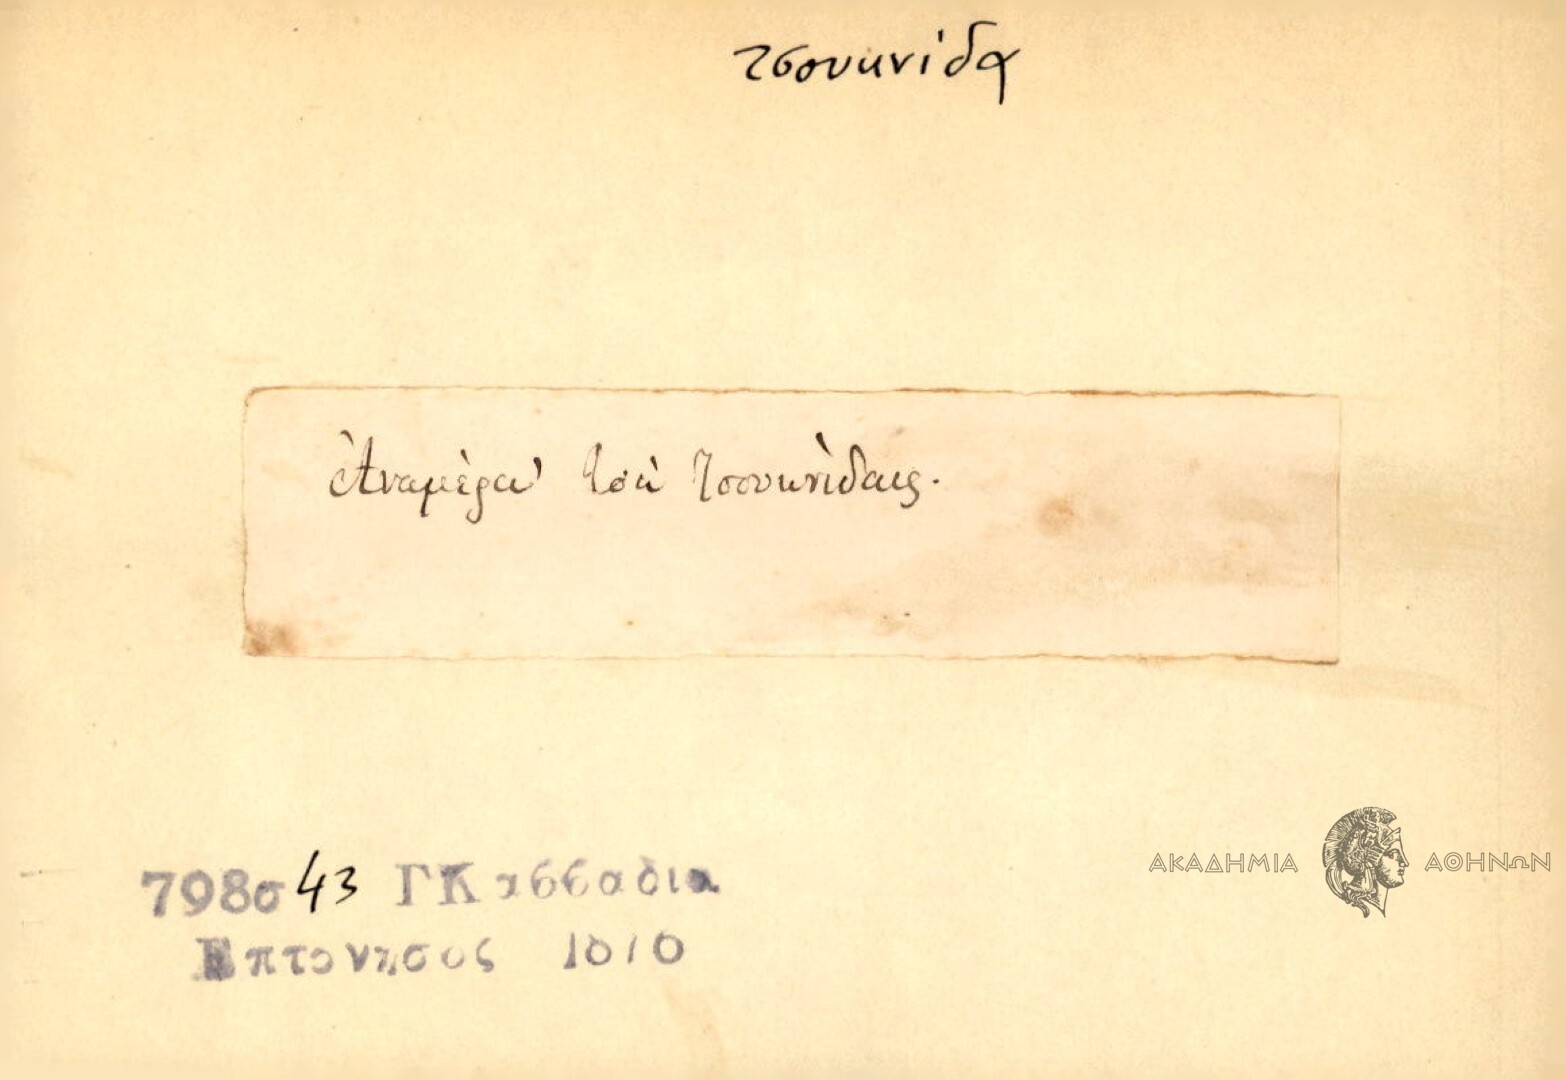 τσουκνίδα
Ἀναμέρα' τσὴ τσουκνίδαις.
798σ 43 ΓΚασσαδια
Επτονησος 1876
ΑΚΑΔΗΜΙΑ ΑΘΗΝΩΝ